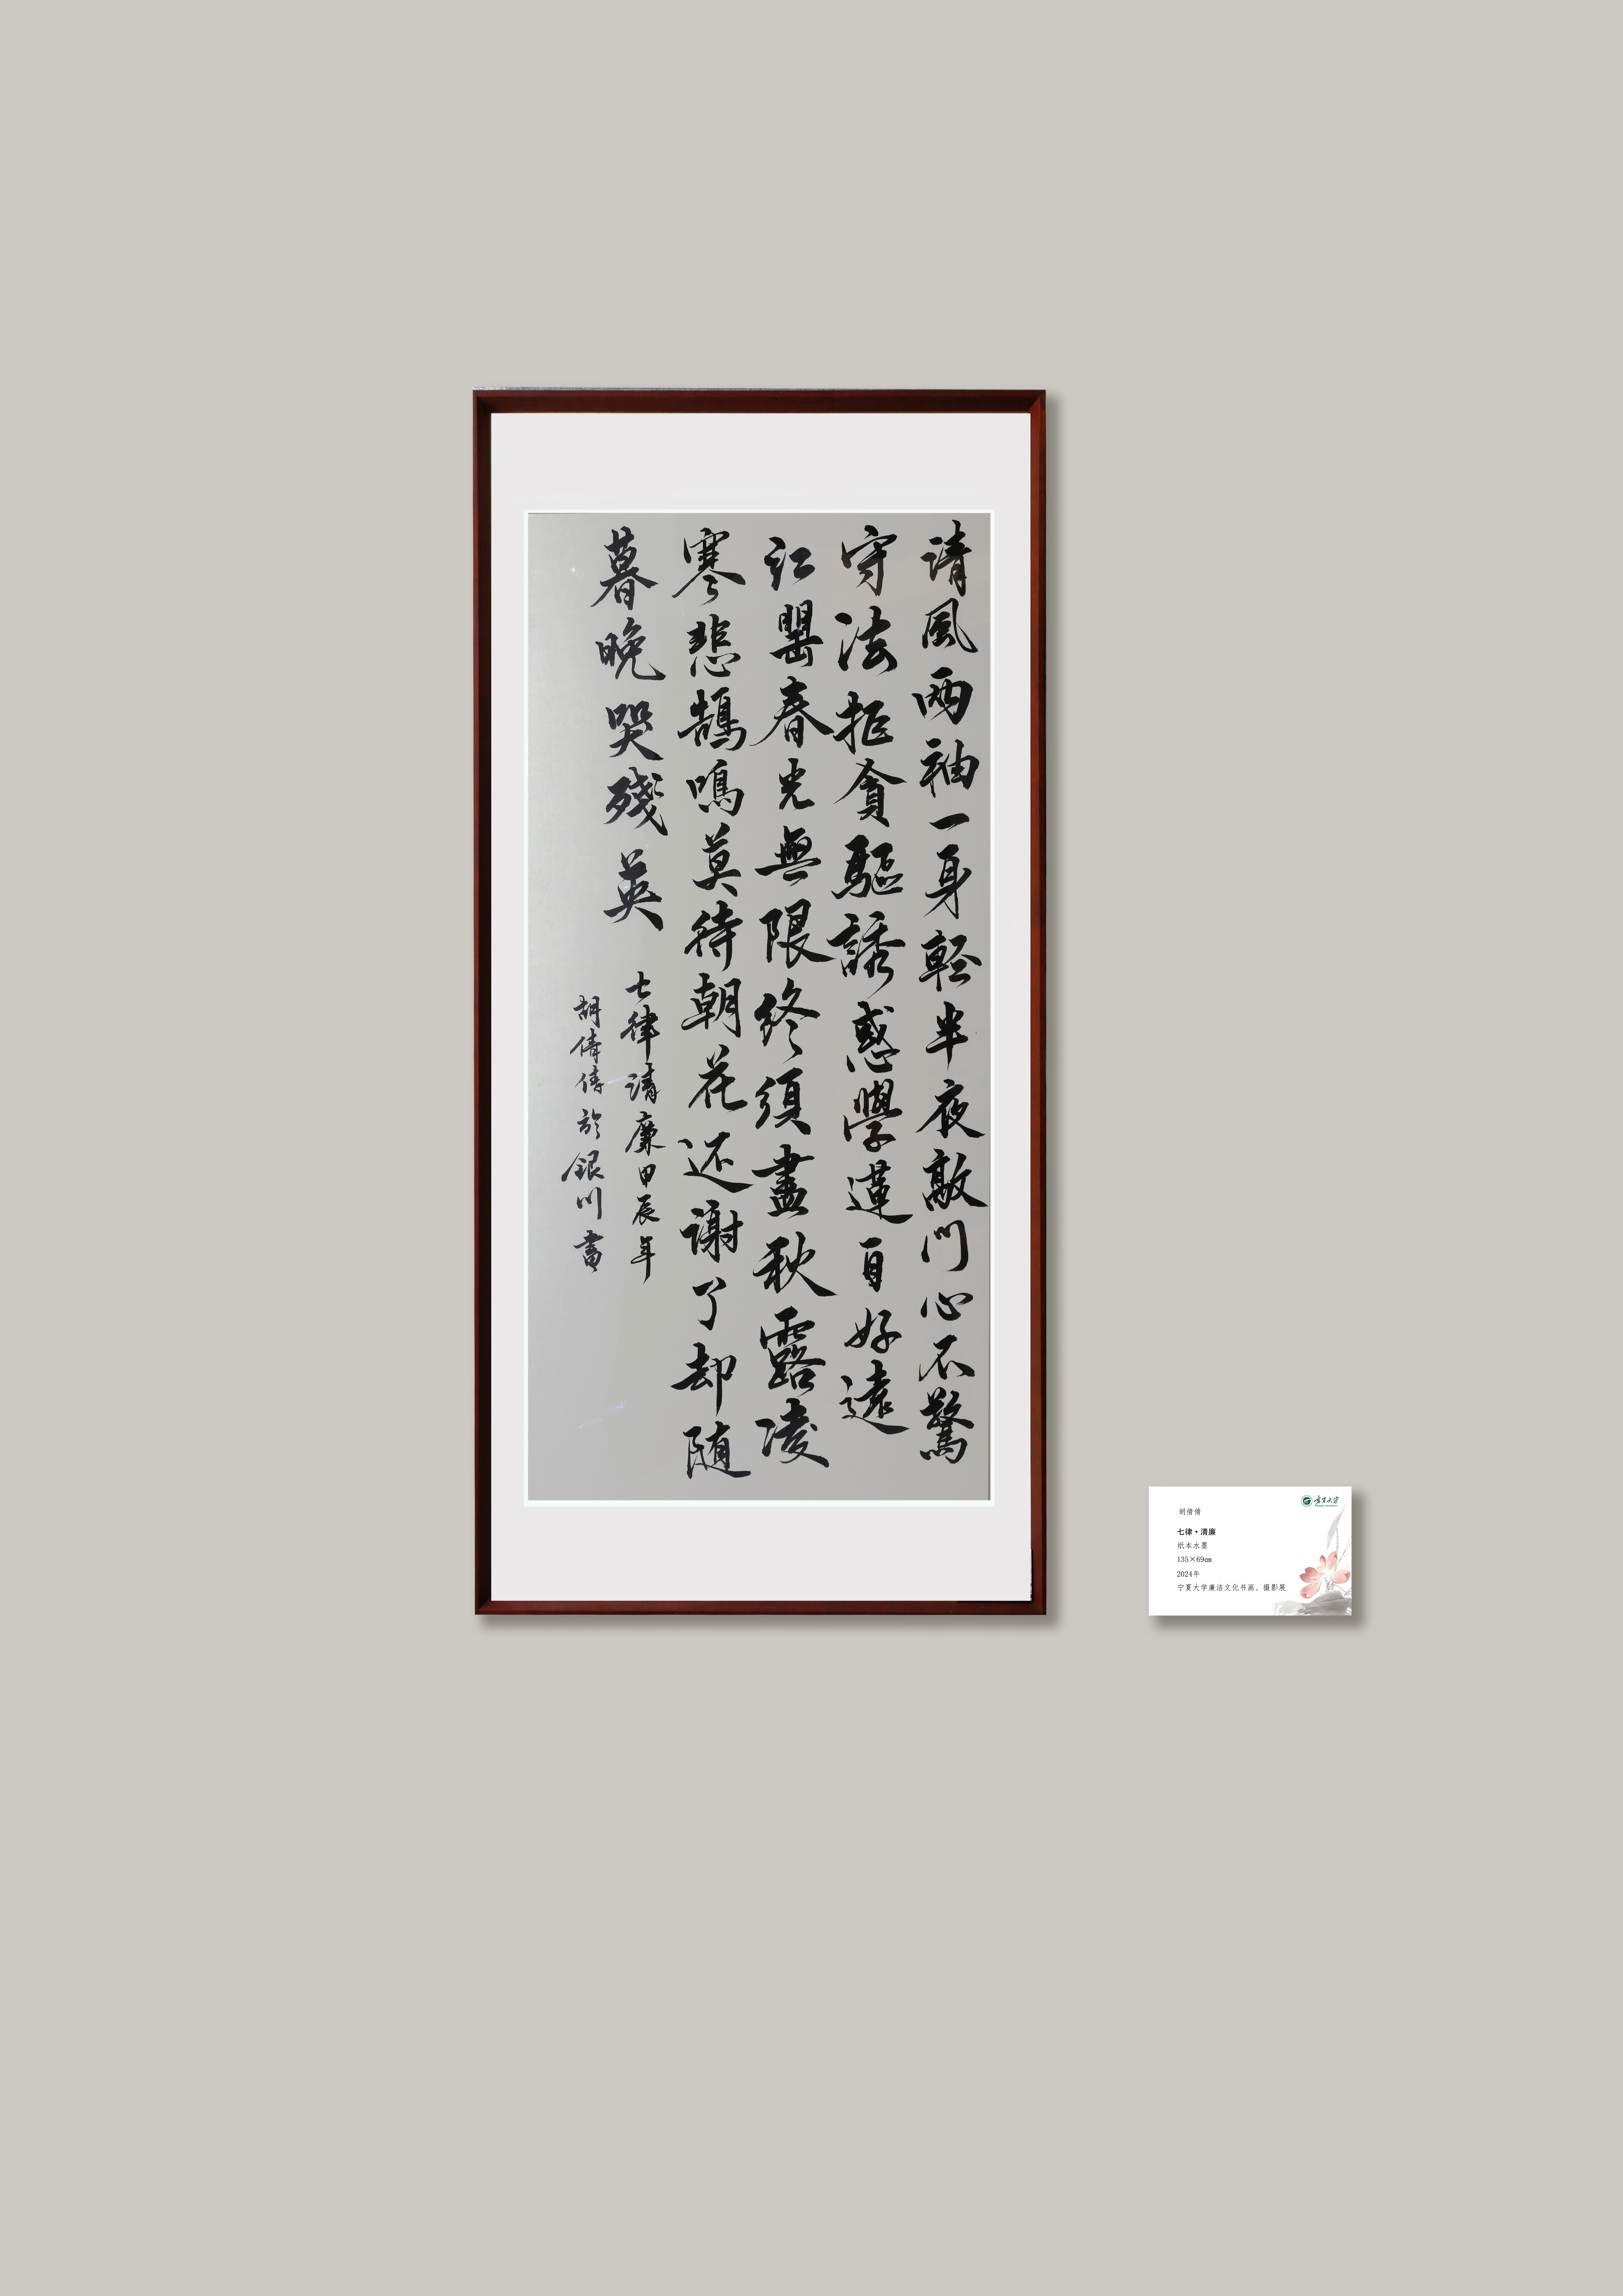 清風兩袖一身輕半夜敲門心不驚
守法拒貪驅誘惑學蓮自好遠
紅罌春光無限終須盡秋露凌
寒悲鵠鳴莫待朝花还謝了却随
暮晚哭殘英
七律清廉甲辰年
胡倩倩於銀川書
宁夏大学
胡倩倩
七律·清廉
纸本水墨
135×69cm
2024年
宁夏大学廉洁文化书画、摄影展